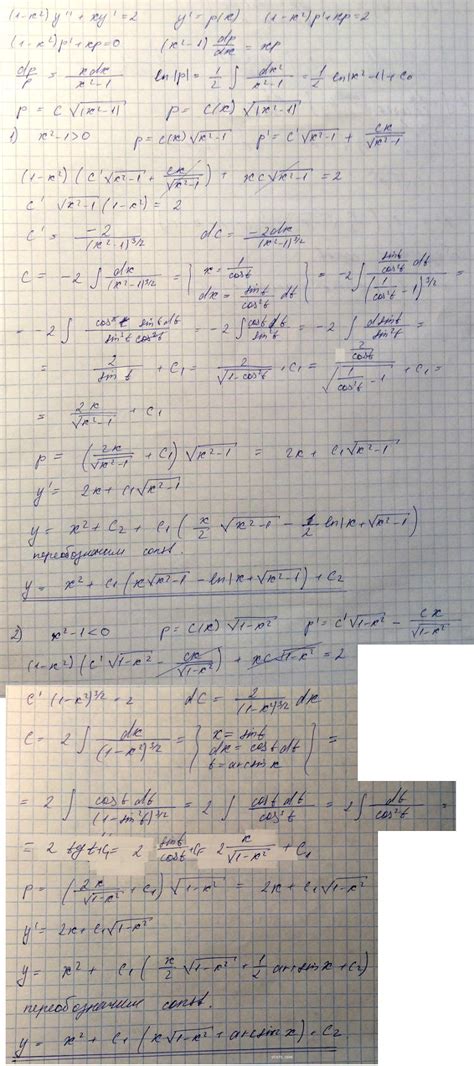 (1-x²)y'' + xy' = 2   y' = p(x)   (1-x²)p' + xp = 2
(1-x²)p' + xp = 0   (x²-1) dp/dx = xp
dp/p = xdx/(x²-1)   ln|p| = 1/2 ∫ dx²/(x²-1) = 1/2 ln|x²-1| + C₀
p = C√|x²-1|   p = C(x) √|x²-1|
1) x²-1>0   p = C(x)√(x²-1)   p' = C'√(x²-1) + Cx/√(x²-1)
(1-x²)(C'√(x²-1) + Cx/√(x²-1)) + xC√(x²-1) = 2
C'√(x²-1) (1-x²) = 2
C' = -2/(x²-1)^(3/2)   dC = -2dx/(x²-1)^(3/2)
C = -2 ∫ dx/(x²-1)^(3/2) = { x = 1/cost   dx = sint/cos²t dt } = -2 ∫ (sint/cos²t dt)/(1/cos²t - 1)^(3/2) =
= -2 ∫ cos³t sint dt/(sin³t cos²t) = -2 ∫ cost dt/sin²t = -2 ∫ dsint/sin²t =
= 2/sint + C₁ = 2/√(1-cos²t) + C₁ = (2/cost)/√(1/cos²t - 1) + C₁ =
= 2x/√(x²-1) + C₁
p = (2x/√(x²-1) + C₁)√(x²-1) = 2x + C₁√(x²-1)
y' = 2x + C₁√(x²-1)
y = x² + C₂ + C₁(x/2 √(x²-1) - 1/2 ln|x+√(x²-1)|)
переобозначим const.
y = x² + C₁(x√(x²-1) - ln|x+√(x²-1)|) + C₂
2) x²-1<0   p = C(x)√(1-x²)   p' = C'√(1-x²) - Cx/√(1-x²)
(1-x²)(C'√(1-x²) - Cx/√(1-x²)) + xC√(1-x²) = 2
C'(1-x²)^(3/2) = 2   dC = 2/(1-x²)^(3/2) dx
C = 2 ∫ dx/(1-x²)^(3/2) = { x = sint   dx = cost dt   t = arcsinx } =
= 2 ∫ cost dt/(1-sin²t)^(3/2) = 2 ∫ cost dt/cos³t = 2 ∫ dt/cos²t =
= 2 tgt + C₁ = 2 sint/cost + C₁ = 2 x/√(1-x²) + C₁
p = (2x/√(1-x²) + C₁)√(1-x²) = 2x + C₁√(1-x²)
y' = 2x + C₁√(1-x²)
y = x² + C₁(x/2 √(1-x²) + 1/2 arcsinx + C₂)
переобозначим const.
y = x² + C₁(x√(1-x²) + arcsinx) + C₂